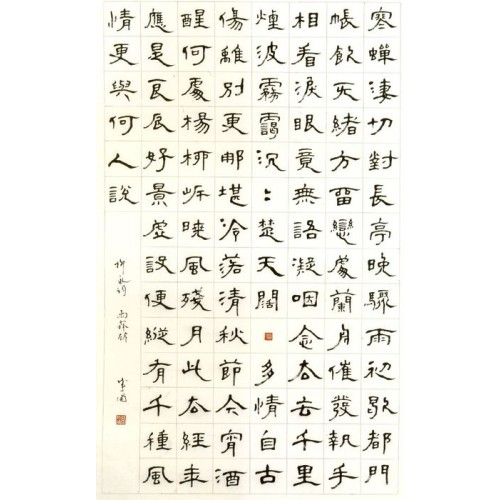 寒蟬淒切對長亭晚驟雨初歇都門
帳飲无緒方留戀處蘭舟催發執手
相看淚眼竟無語凝咽念去去千里
煙波霧靄沉々楚天闊多情自古
傷離別更那堪冷落清秋節今宵酒
醒何處楊柳岸曉風殘月此去經年
應是良辰好景虛設便縱有千種風
情更與何人說
柳永詞 雨霖鈴